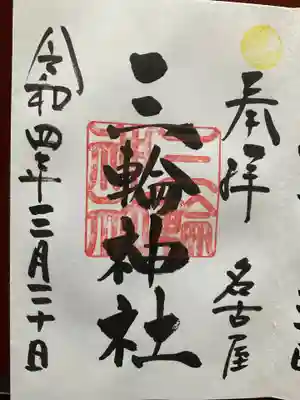 奉拝　名古屋
三輪神社
令和四年三月二十日